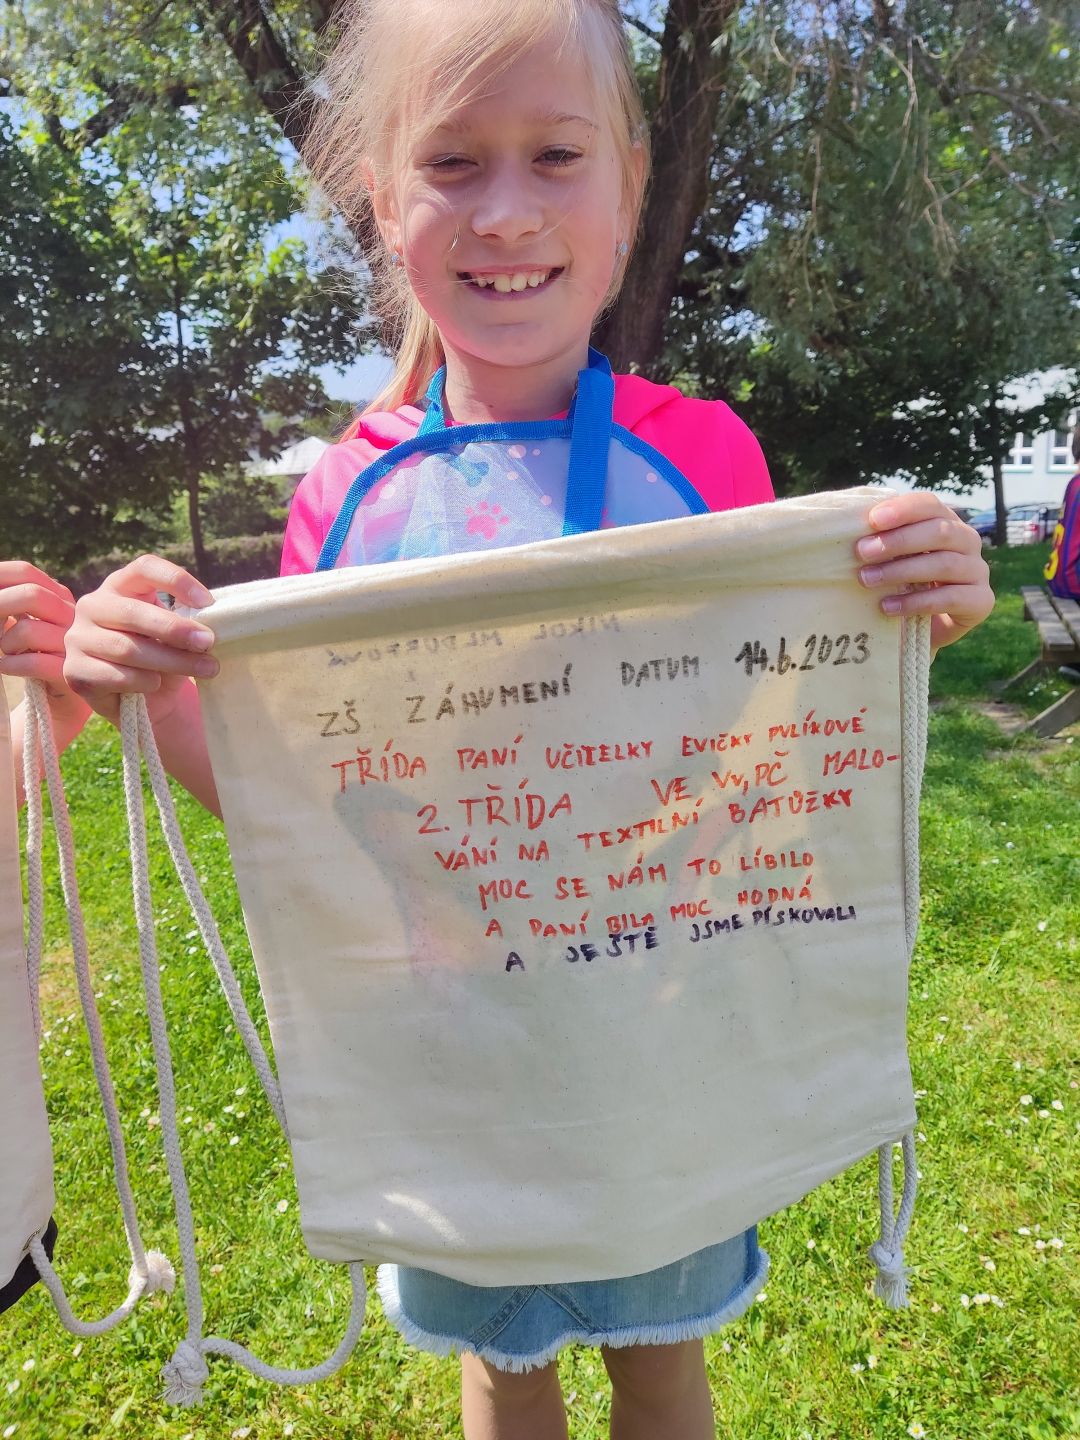 NIKOL
ZŠ ZÁHUMENÍ DATUM 14.6.2023
TŘÍDA PANÍ UČITELKY EVIČKY PULÍKOVÉ
2. TŘÍDA VE VV, PČ MALO-
VÁNÍ NA TEXTILNÍ BATŮŽKY
MOC SE NÁM TO LÍBILO
A PANÍ BILA MOC HODNÁ
A JEŠTĚ JSME PÍSKOVALI